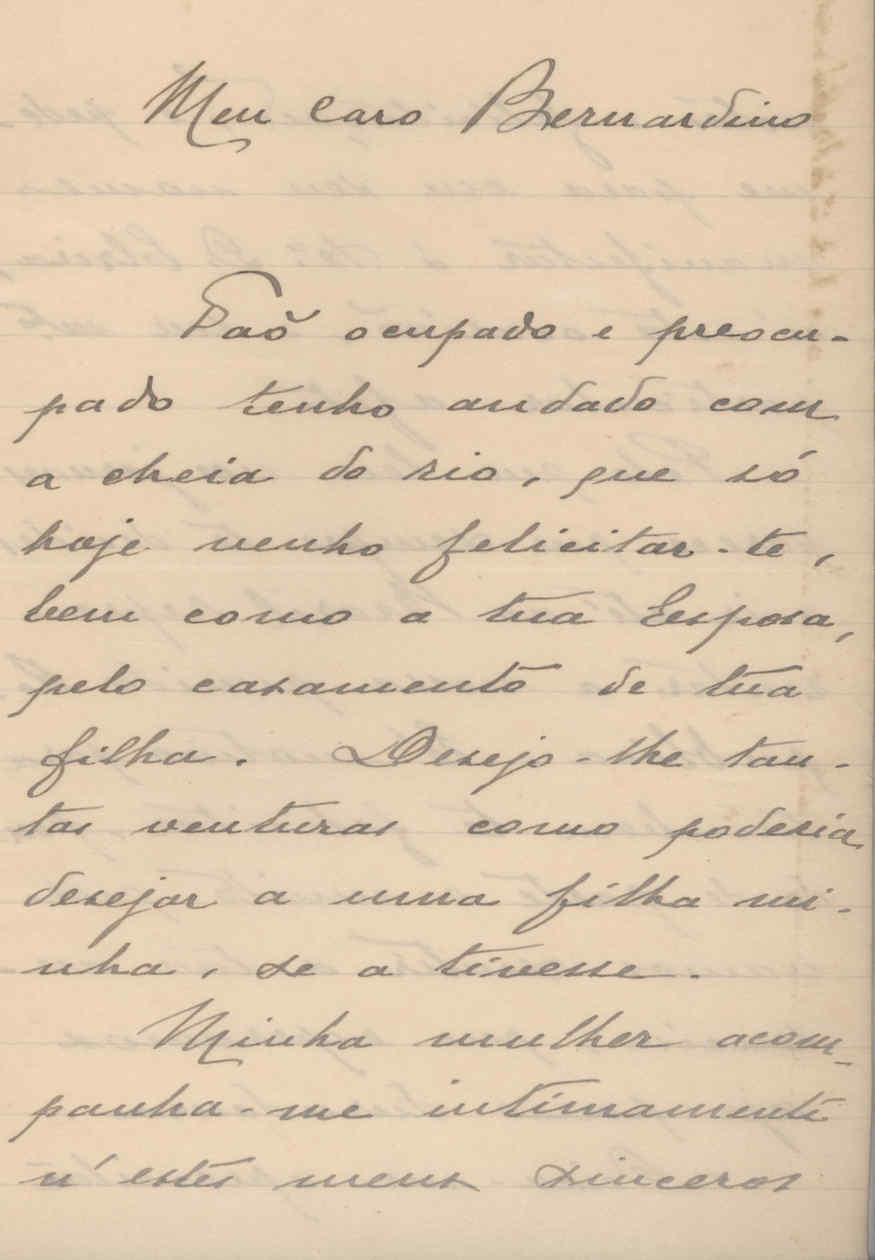 Meu caro Bernardino
Taõ ocupado e preocu-
pado tenho andado com
a cheia do rio, que só
hoje venho felicitar-te,
bem como a tua Esposa,
pelo casamento de tua
filha. Desejo-lhe tan-
tas venturas como poderia
desejar a uma filha mi-
nha, se a tivesse.
Minha mulher acom-
panha-me intimamente
n'estes meus sinceros